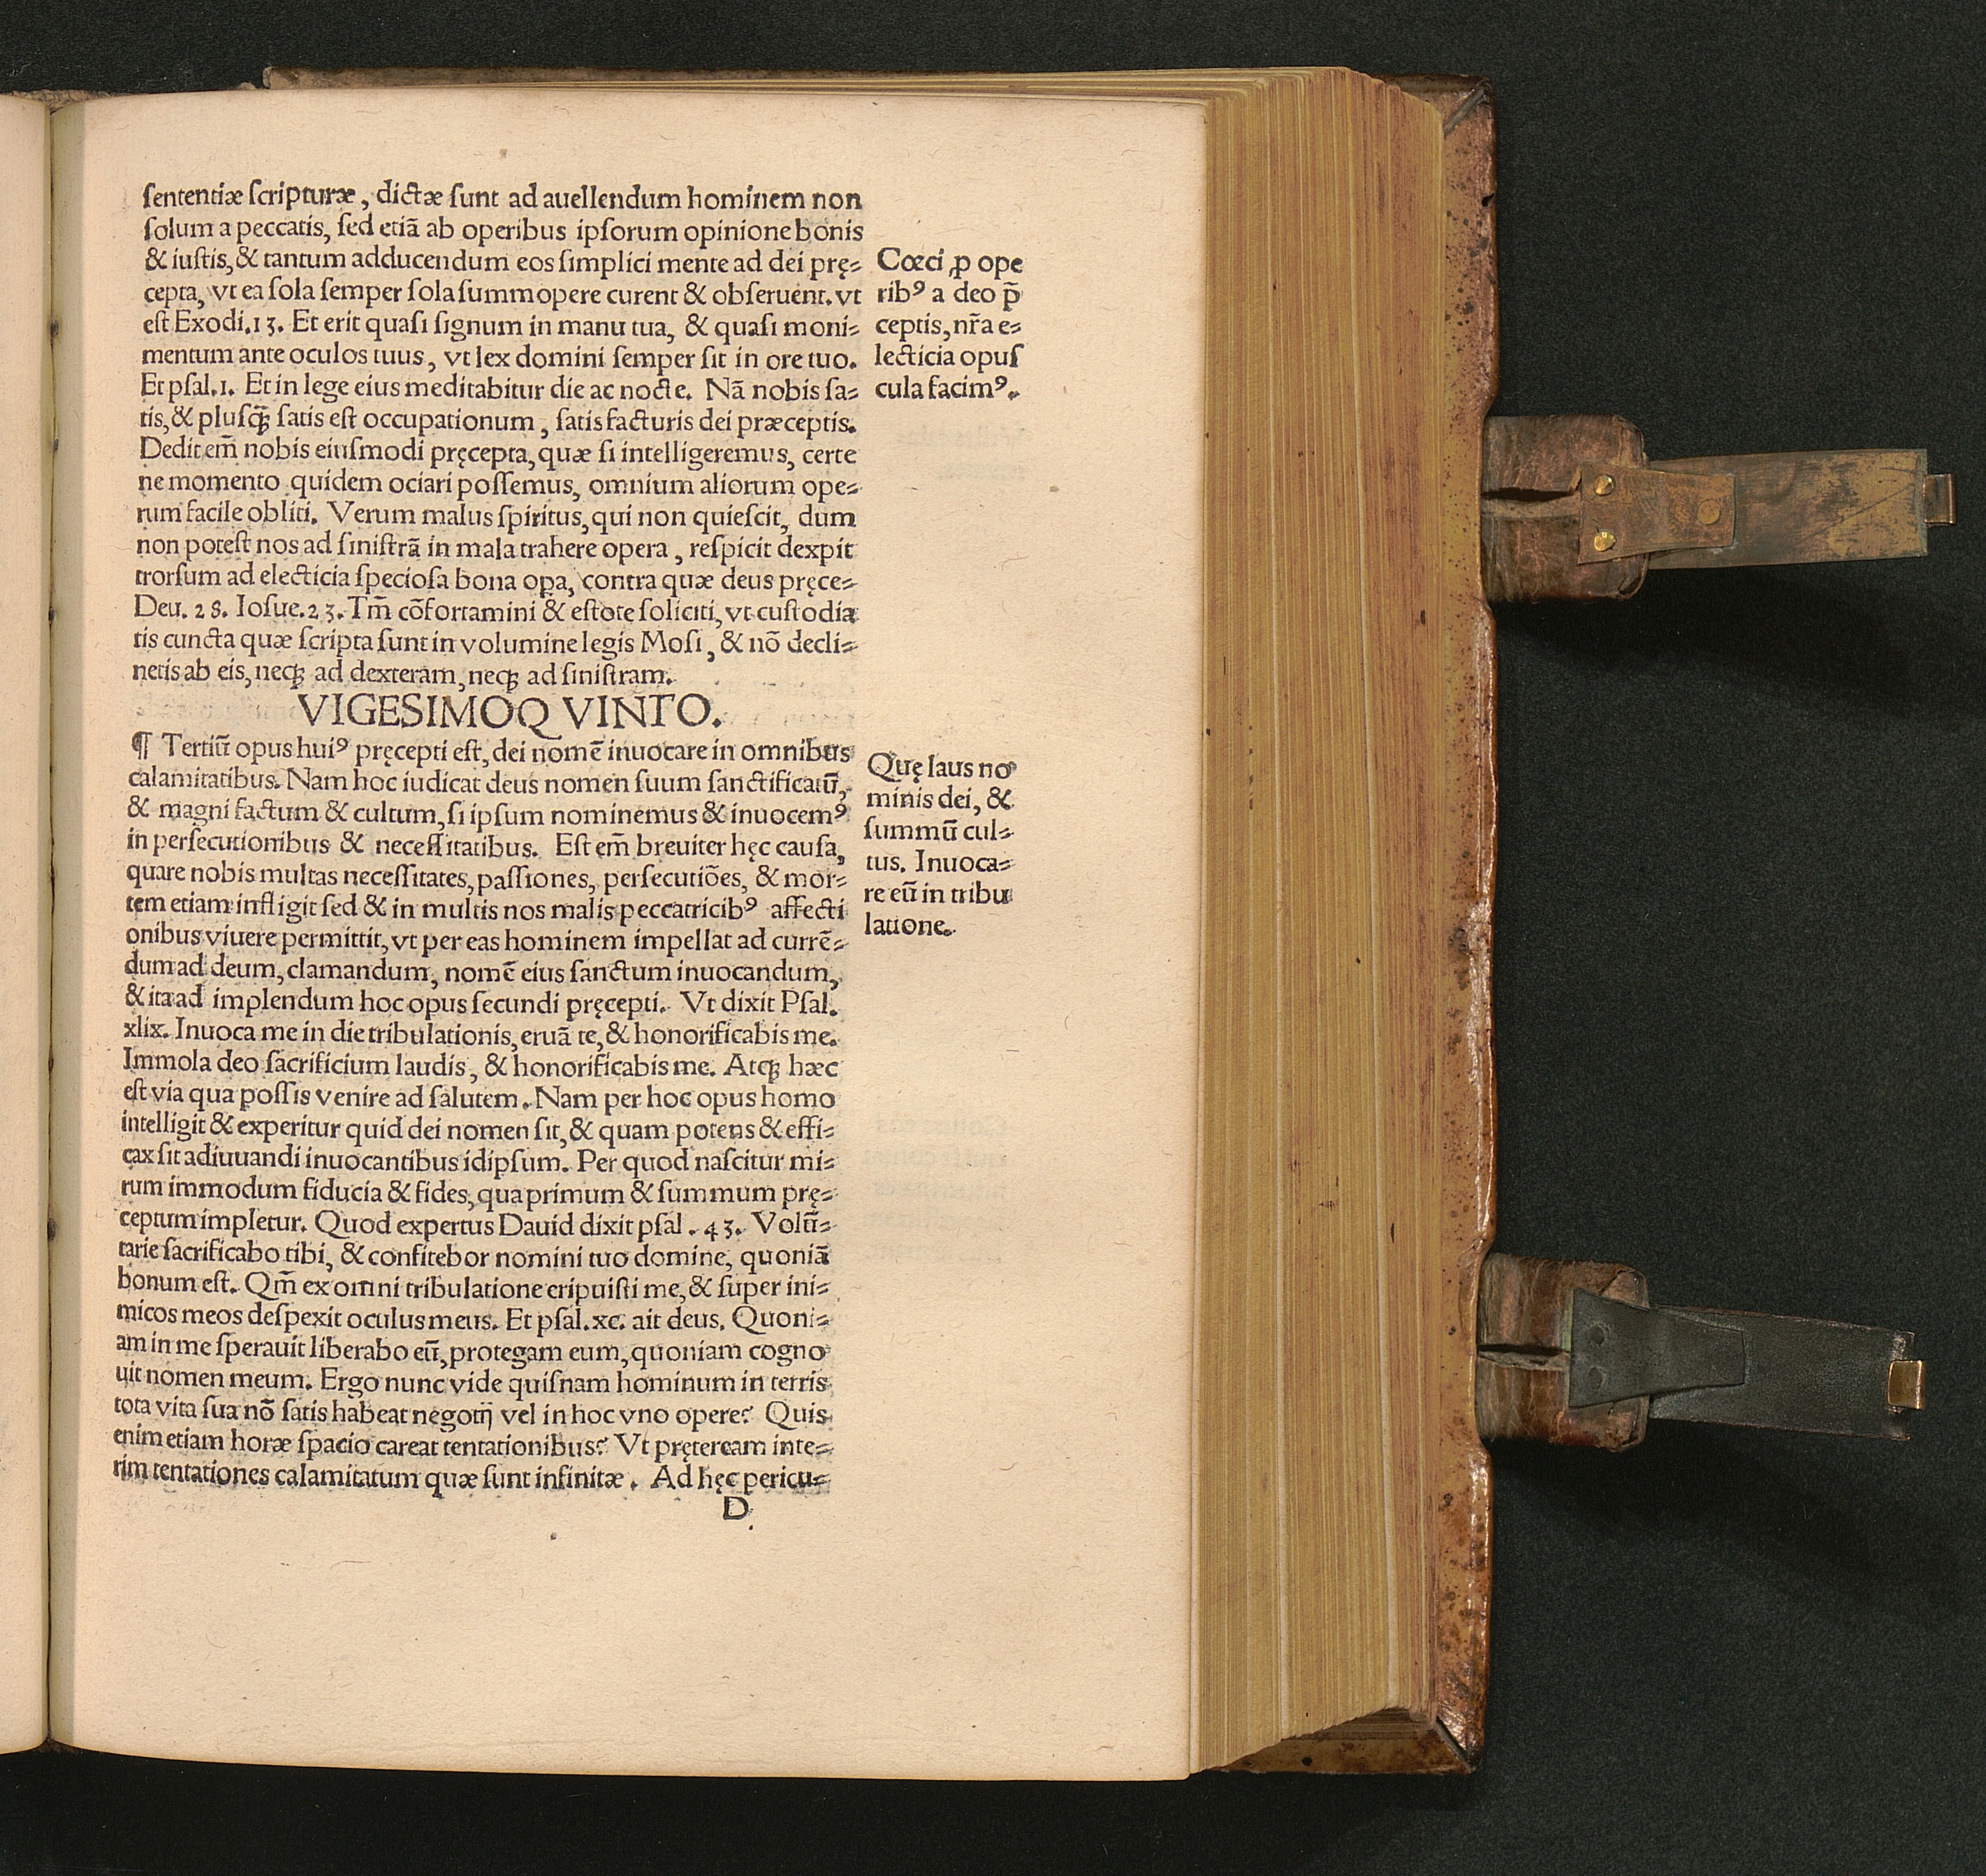 ſententiæ ſcripturæ, dictæ ſunt ad auellendum hominem non
ſolum a peccatis, ſed etiā ab operibus ipſorum opinione bonis
& iuſtis, & tantum adducendum eos ſimplici mente ad dei prę⸗
cepta, vt ea ſola ſemper ſola ſummopere curent & obſeruent. vt
eſt Exodi.13. Et erit quaſi ſignum in manu tua, & quaſi moni⸗
mentum ante oculos tuus, vt lex domini ſemper ſit in ore tuo.
Et pſal.1. Et in lege eius meditabitur die ac nocte. Nā nobis ſa⸗
tis, & pluſq̃; ſatis eſt occupationum, ſatis facturis dei præceptis.
Dedit em̄ nobis eiuſmodi pręcepta, quæ ſi intelligeremus, certe
ne momento quidem ociari poſſemus, omnium aliorum ope⸗
rum facile obliti. Verum malus ſpiritus, qui non quieſcit, dum
non poteſt nos ad ſiniſtrā in mala trahere opera, reſpicit dexpit
trorſum ad electicia ſpecioſa bona oꝑa, contra quæ deus pręce⸗
Deu. 28. Ioſue.23. Tm̄ cōfortamini & eſtote ſoliciti, vt cuſtodia
tis cuncta quæ ſcripta ſunt in volumine legis Moſi, & nō decli⸗
netis ab eis, neq; ad dexteram, neq; ad ſiniſtram.
Cœci ꝓ ope
ribꝰ a deo p̄
ceptis, nr̄a e⸗
lecticia opuſ
cula facimꝰ.
VIGESIMOQ VINTO.
¶ Tertiū opus huiꝰ pręcepti eſt, dei nomē inuocare in omnibus
calamitatibus. Nam hoc iudicat deus nomen ſuum ſanctificatū,
& magni factum & cultum, ſi ipſum nominemus & inuocemꝰ
in perſecutionibus & neceſſitatibus. Eſt em̄ breuiter hęc cauſa,
quare nobis multas neceſſitates, paſſiones, perſecutiōes, & mor⸗
tem etiam infligit ſed & in multis nos malis peccatricibꝰ affecti
onibus viuere permittit, vt per eas hominem impellat ad currē⸗
dum ad deum, clamandum, nomē eius ſanctum inuocandum,
& ita ad implendum hoc opus ſecundi pręcepti. Vt dixit Pſal.
xlix. Inuoca me in die tribulationis, eruā te, & honorificabis me.
Immola deo ſacrificium laudis, & honorificabis me. Atq; hæc
eſt via qua poſſis venire ad ſalutem. Nam per hoc opus homo
intelligit & experitur quid dei nomen ſit, & quam potens & effi⸗
cax ſit adiuuandi inuocantibus idipſum. Per quod naſcitur mi⸗
rum immodum fiducia & fides, qua primum & ſummum prę⸗
ceptum impletur. Quod expertus Dauid dixit pſal. 43. Volū⸗
tarie ſacrificabo tibi, & confitebor nomini tuo domine, quoniā
bonum eſt. Qm̄ ex omni tribulatione eripuiſti me, & ſuper ini⸗
micos meos deſpexit oculus meus. Et pſal. xc. ait deus. Quoni⸗
am in me ſperauit liberabo eū, protegam eum, quoniam cogno
uit nomen meum. Ergo nunc vide quiſnam hominum in terris
tota vita ſua nō ſatis habeat negotij vel in hoc vno opere? Quis
enim etiam horæ ſpacio careat tentationibus? Vt pręteream inte⸗
rim tentationes calamitatum quæ ſunt infinitæ. Ad hęc pericu⸗
D
Quę laus no
minis dei, &
ſummū cul⸗
tus. Inuoca⸗
re eū in tribu
latione.